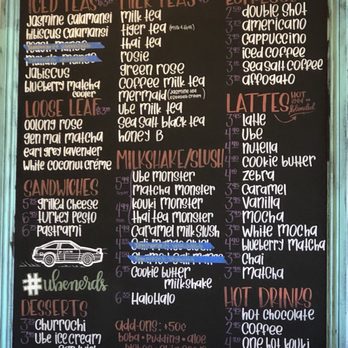 ICED TEAS
Jasmine Calamansi
Hibiscus Calamansi
Jabiscus
blueberry matcha
LOOSE LEAF
oolong rose
gen mai matcha
earl grey lavender
white coconut crème
SANDWICHES
grilled cheese
turkey pesto
pastrami
#ubenerds
DESSERTS
churrochi
ube ice cream
MILK TEAS
milk tea
tiger tea
thai tea
rosie
green rose
coffee milk tea
mermaid
ube milk tea
sea salt black tea
honey B
MILKSHAKE/SLUSH
ube monster
matcha monster
kouki monster
thai tea monster
caramel milk slush
cookie butter
milkshake
Halohalo
add-ons: +50¢
boba • pudding • aloe
double shot
americano
cappuccino
iced coffee
sea salt coffee
affogato
LATTES
HOT
latte
ube
nutella
cookie butter
zebra
caramel
vanilla
mocha
white mocha
blueberry matcha
chai
matcha
HOT DRINKS
hot chocolate
coffee
one hot kouki